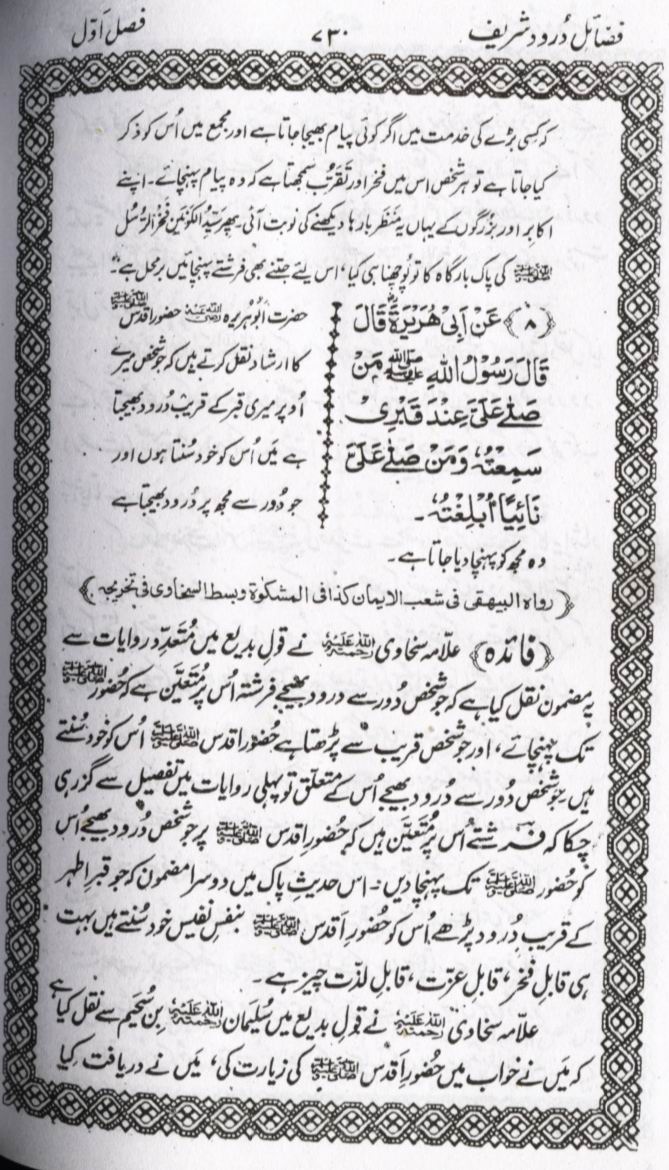 فضائل دُرود شریف ۷۳۰ فصل اوّل
کہ کسی بڑے کی خدمت میں اگر کوئی پیام بھیجا جاتا ہے اور مجمع میں اُس کو ذکر
کیا جاتا ہے تو ہر شخص اس میں فخر اور تقرّب سمجھتا ہے کہ وہ پیام پہنچائے۔ اپنے
اکابر اور بزرگوں کے یہاں یہ مَنظر بارہا دیکھنے کی نوبت آئی۔ پھر سیّد الکونین فخر الرُّسُل
ﷺ کی پاک بارگاہ کا تو پوچھنا ہی کیا، اس لئے جتنے بھی فرشتے پہنچائیں برمحل ہے۔
﴿۸﴾ عَنْ اَبِیْ هُرَیْرَۃَؓ قَالَ
قَالَ رَسُوْلُ اللهِ ﷺ مَنْ
صَلّٰے عَلَیَّ عِنْدَ قَبْرِیْ
سَمِعْتُهٗ وَمَنْ صَلّٰے عَلَیَّ
نَائِیًا اُبْلِغْتُهٗ۔
حضرت ابُو ہریرہ رضی اللہ عنہ حضورِ اقدس ﷺ
کا ارشاد نقل کرتے ہیں کہ جو شخص میرے
اُوپر میری قبر کے قریب دُرود بھیجتا
ہے میں اُس کو خود سُنتا ہوں اور
جو دُور سے مجھ پر دُرود بھیجتا ہے
وہ مجھ کو پہنچا دیا جاتا ہے۔
﴿رواہ البیهقی فی شعب الایمان کذا فی المشکوۃ وبسط السخاوی فی تخریجه﴾
﴿فائدہ﴾ علّامہ سخاوی رحمۃ اللہ علیہ نے قولِ بدیع میں مُتعدّد روایات سے
یہ مضمون نقل کیا ہے کہ جو شخص دُور سے درود بھیجے فرشتہ اُس پر مُتَعَیَّن ہے کہ حُضور ﷺ
تک پہنچائے، اور جو شخص قریب سے پڑھتا ہے حضورِ اقدس ﷺ اُس کو خود سُنتے
ہیں۔ جو شخص دُور سے درود بھیجے اُس کے متعلق تو پہلی روایات میں تفصیل سے گزر ہی
چکا کہ فرشتے اُس پر مُتَعَیَّن ہیں کہ حُضورِ اقدس ﷺ پر جو شخص دُرود بھیجے اُس
کو حُضور ﷺ تک پہنچا دیں۔ اس حدیثِ پاک میں دوسرا مضمون کہ جو قبرِ اطہر
کے قریب درود پڑھے اُس کو حُضورِ اَقدس ﷺ بنفسِ نفیس خود سُنتے ہیں بہت
ہی قابلِ فخر، قابلِ عزت، قابلِ لذت چیز ہے۔
علّامہ سخاوی رحمۃ اللہ علیہ نے قولِ بدیع میں سُلیمان رحمۃ اللہ علیہ بن سُحَیم سے نقل کیا ہے
کہ مَیں نے خواب میں حُضورِ اَقدس ﷺ کی زیارت کی، مَیں نے دریافت کیا